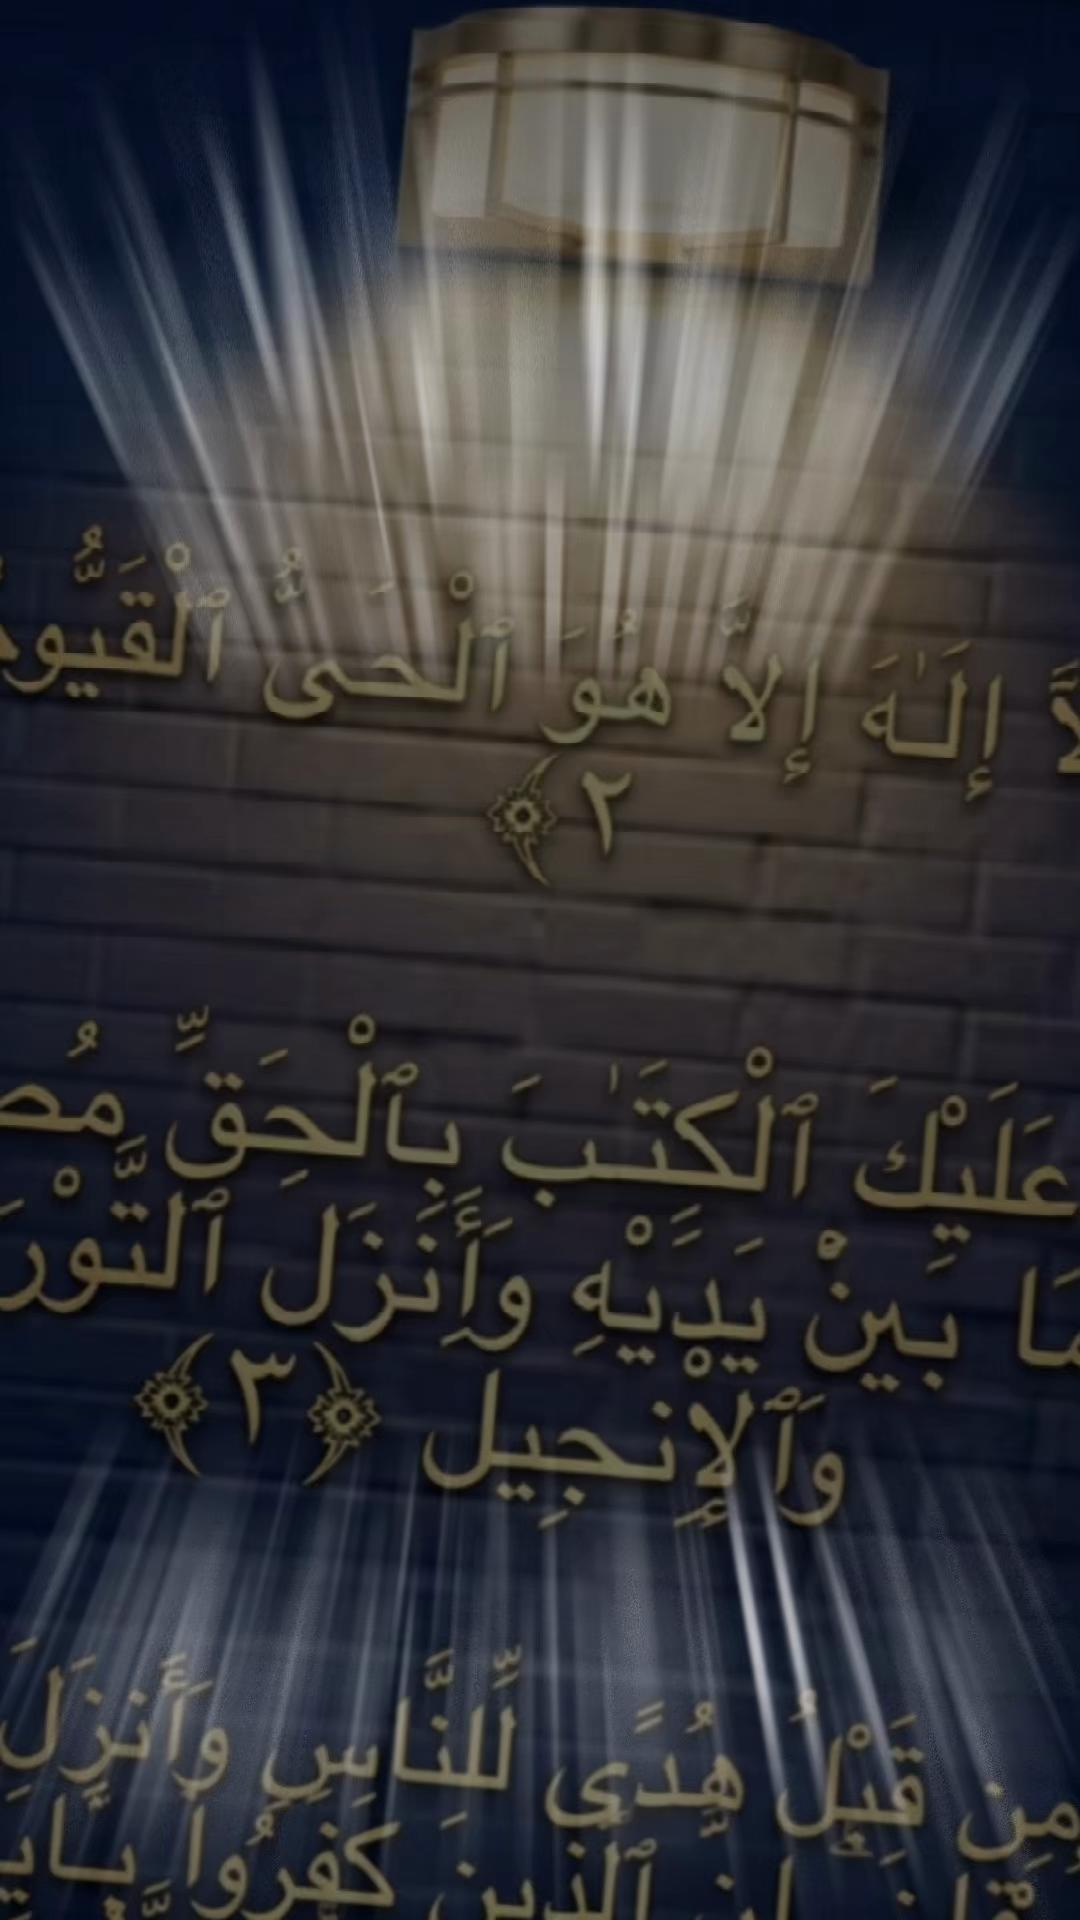 إِلَـٰهَ إِلاَّ هُوَ ٱلْحَىُّ ٱلْقَيُّومُ
٢﴾
عَلَيْكَ ٱلْكِتَـٰبَ بِٱلْحَقِّ
بَيْنَ يَدَيْهِ وَأَنزَلَ
وَٱلإِنجِيلَ ﴿٣﴾
مِن قَبْلُ هُدًى لِّلنَّاسِ وَأَنزَلَ
إِنَّ ٱلَّذِينَ كَفَرُواْ